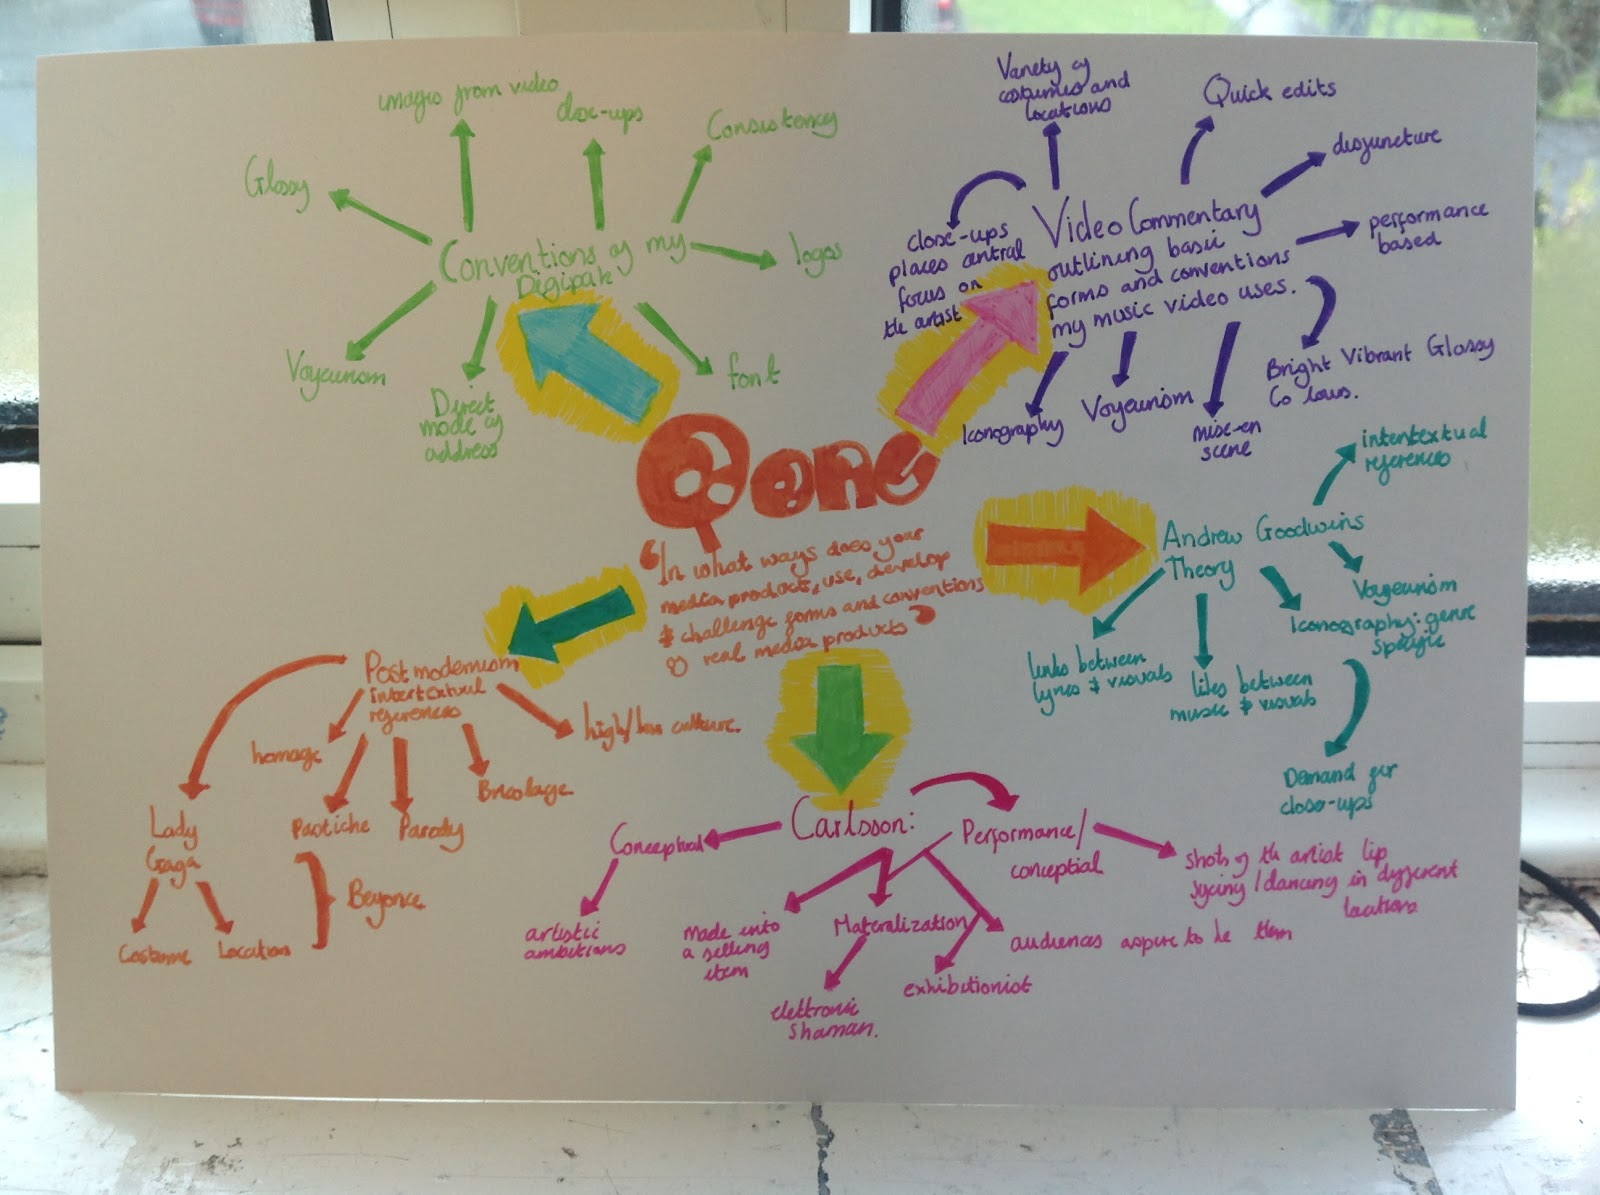 images from video
close-ups
Consistency
Glossy
logos
Conventions of my
Digipak
Voyeurism
Direct
mode of
address
font
Variety of
costumes and
locations
Quick edits
disjuncture
performance
based
close-ups
places central
focus on
the artist
Video Commentary
outlining basic
forms and conventions
my music video uses.
Iconography
Voyeurism
mise-en
scene
Bright Vibrant Glossy
Colours.
Q one
"In what ways does your
media product, use, develop
& challenge forms and conventions
of real media products"
Andrew Goodwins
Theory
intentextual
references
Voyeurism
Iconography: genre
specific
links between
lyrics & visuals
liks between
music & visuals
Demand for
close-ups
Postmodernism
intertextual
references
homage
Pastiche
Parody
Bricolage
high/low culture.
Lady
Gaga
Costume
Location
Beyonce
Carlsson:
Conceptual
artistic
ambitions
made into
a selling
item
Materalization
elettronic
shaman.
exhibitionist
audiences aspire to be them
Performance/
conceptial
shots of the artist lip
sycing/dancing in different
locations